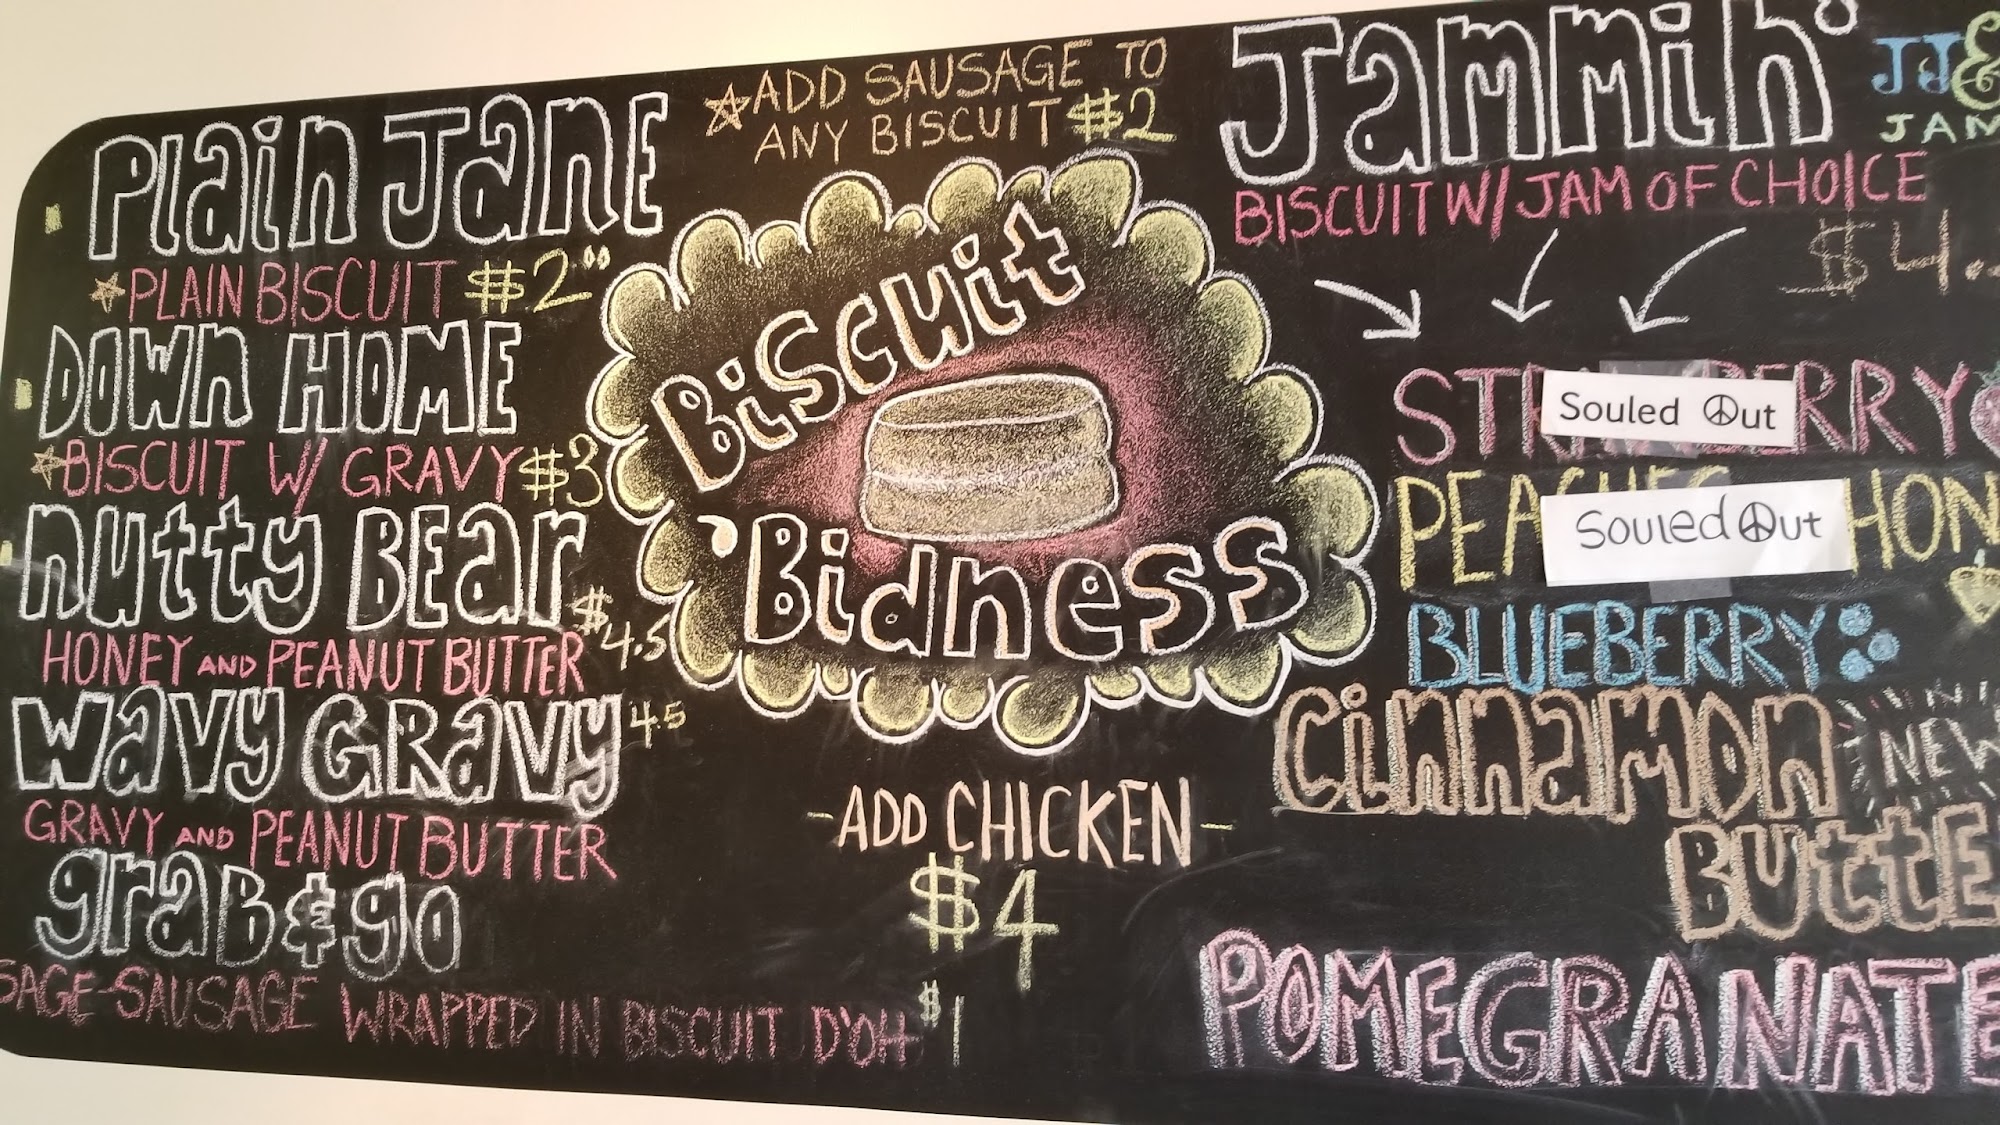 Plain Jane
PLAIN BISCUIT $2.00
DOWN HOME
BISCUIT W/ GRAVY $3
nutty BEar $4.5
HONEY AND PEANUT BUTTER
WAVY GRAVY 4.5
GRAVY AND PEANUT BUTTER
graB & go
SAGE-SAUSAGE WRAPPED IN BISCUIT D'OH $1
ADD SAUSAGE TO
ANY BISCUIT $2
Biscuit
'Bidness
-ADD CHICKEN-
$4
Jammin'
JJ&
JAM
BISCUIT W/ JAM OF CHOICE
$4.
STRAWBERRY
Souled Out
PEACHES HON
Souled Out
BLUEBERRY
Cinnamon
NEW
Butte
POMEGRANATE